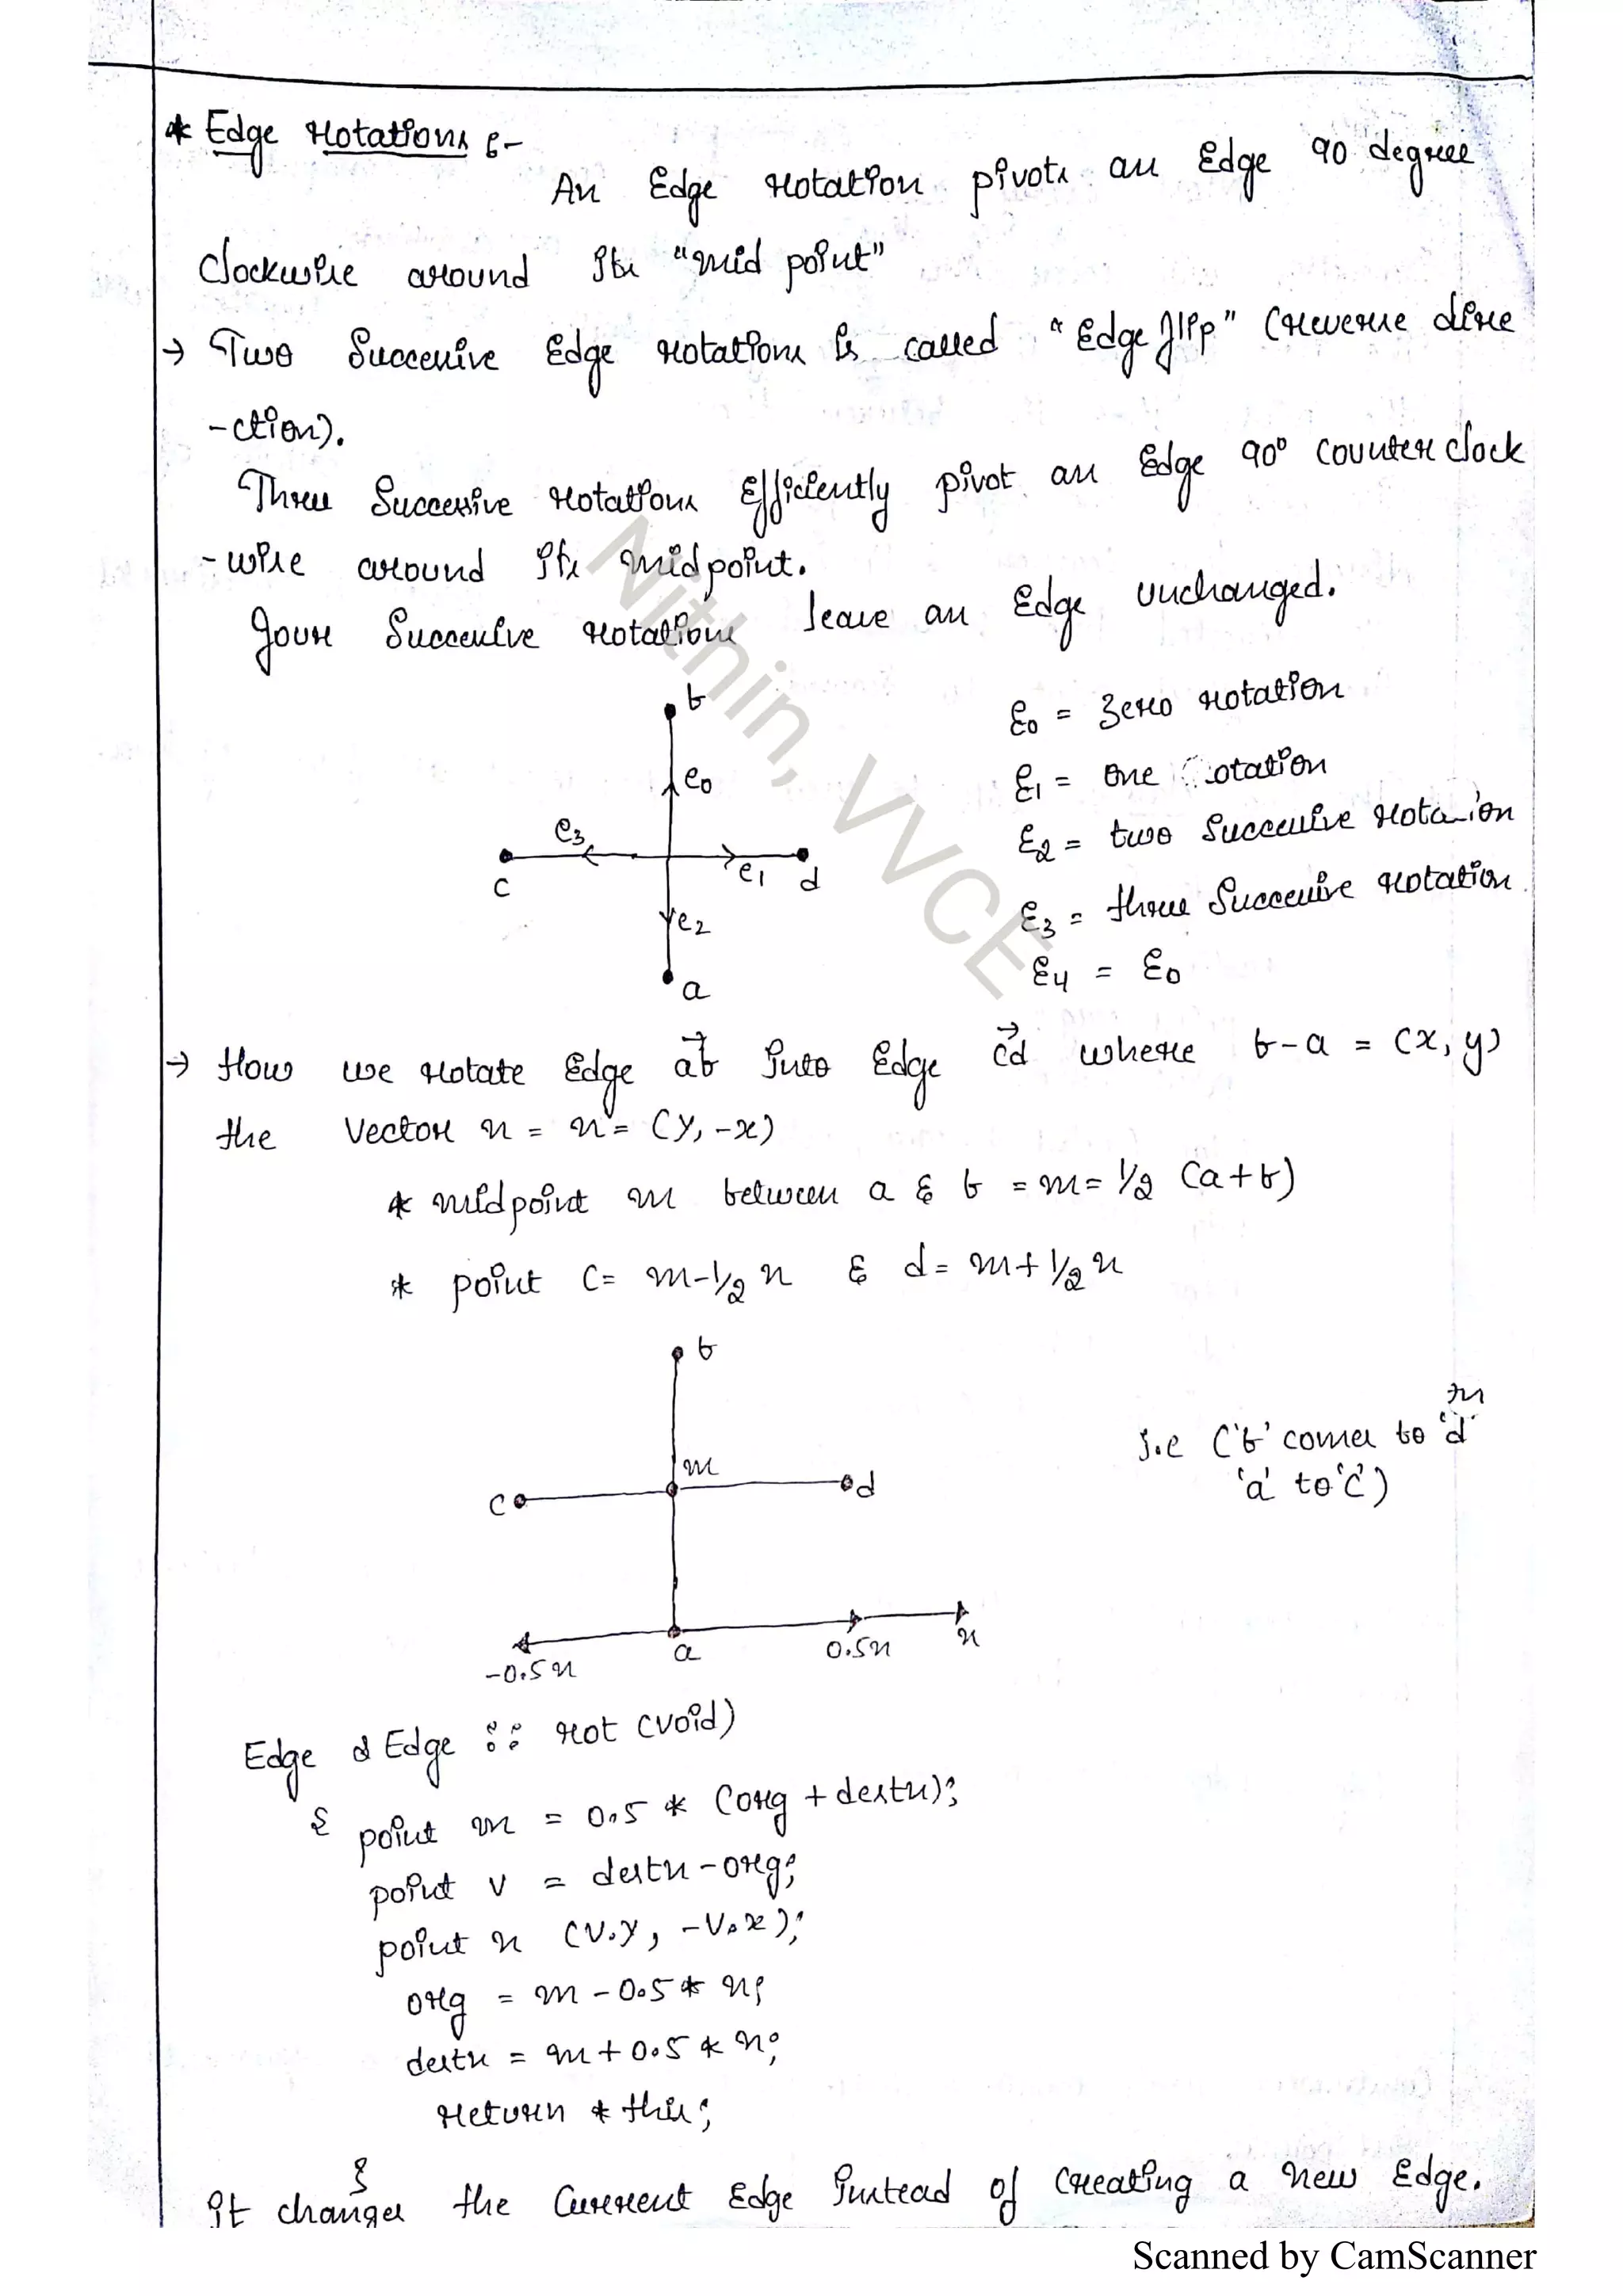 * Edge rotations :-
An Edge rotation pivots an Edge 90 degree
clockwise around its "mid point"
→ Two Successive Edge rotations is called "Edge flip" (reverse dire
-ction).
Three Successive rotations Efficiently pivot an Edge 90° counter clock
-wise around its midpoint.
four Successive rotations leave an Edge unchanged.
b
e0
e3
e1
c
d
e2
a
E0 = zero rotation
E1 = one otation
E2 = two Successive rotation
E3 = three Successive rotation
E4 = E0
→ How we rotate Edge a⃗b into Edge c⃗d where b-a = (x, y)
the Vector n = n = (y, -x)
* midpoint m between a & b = m = 1/2 (a+b)
* point c = m-1/2 n & d = m+1/2 n
b
m
c
d
-0.5n
a
0.5n
n
m
i.e ('b' comes to 'd'
'a' to 'c')
Edge & Edge :: rot (void)
{ point m = 0.5 * (org + destn);
point v = destn - org;
point n (v.y, -v.x);
org = m - 0.5 * n;
destn = m + 0.5 * n;
return * this;
}
it changes the current Edge instead of creating a new Edge.
Nithin, VVCE
Scanned by CamScanner